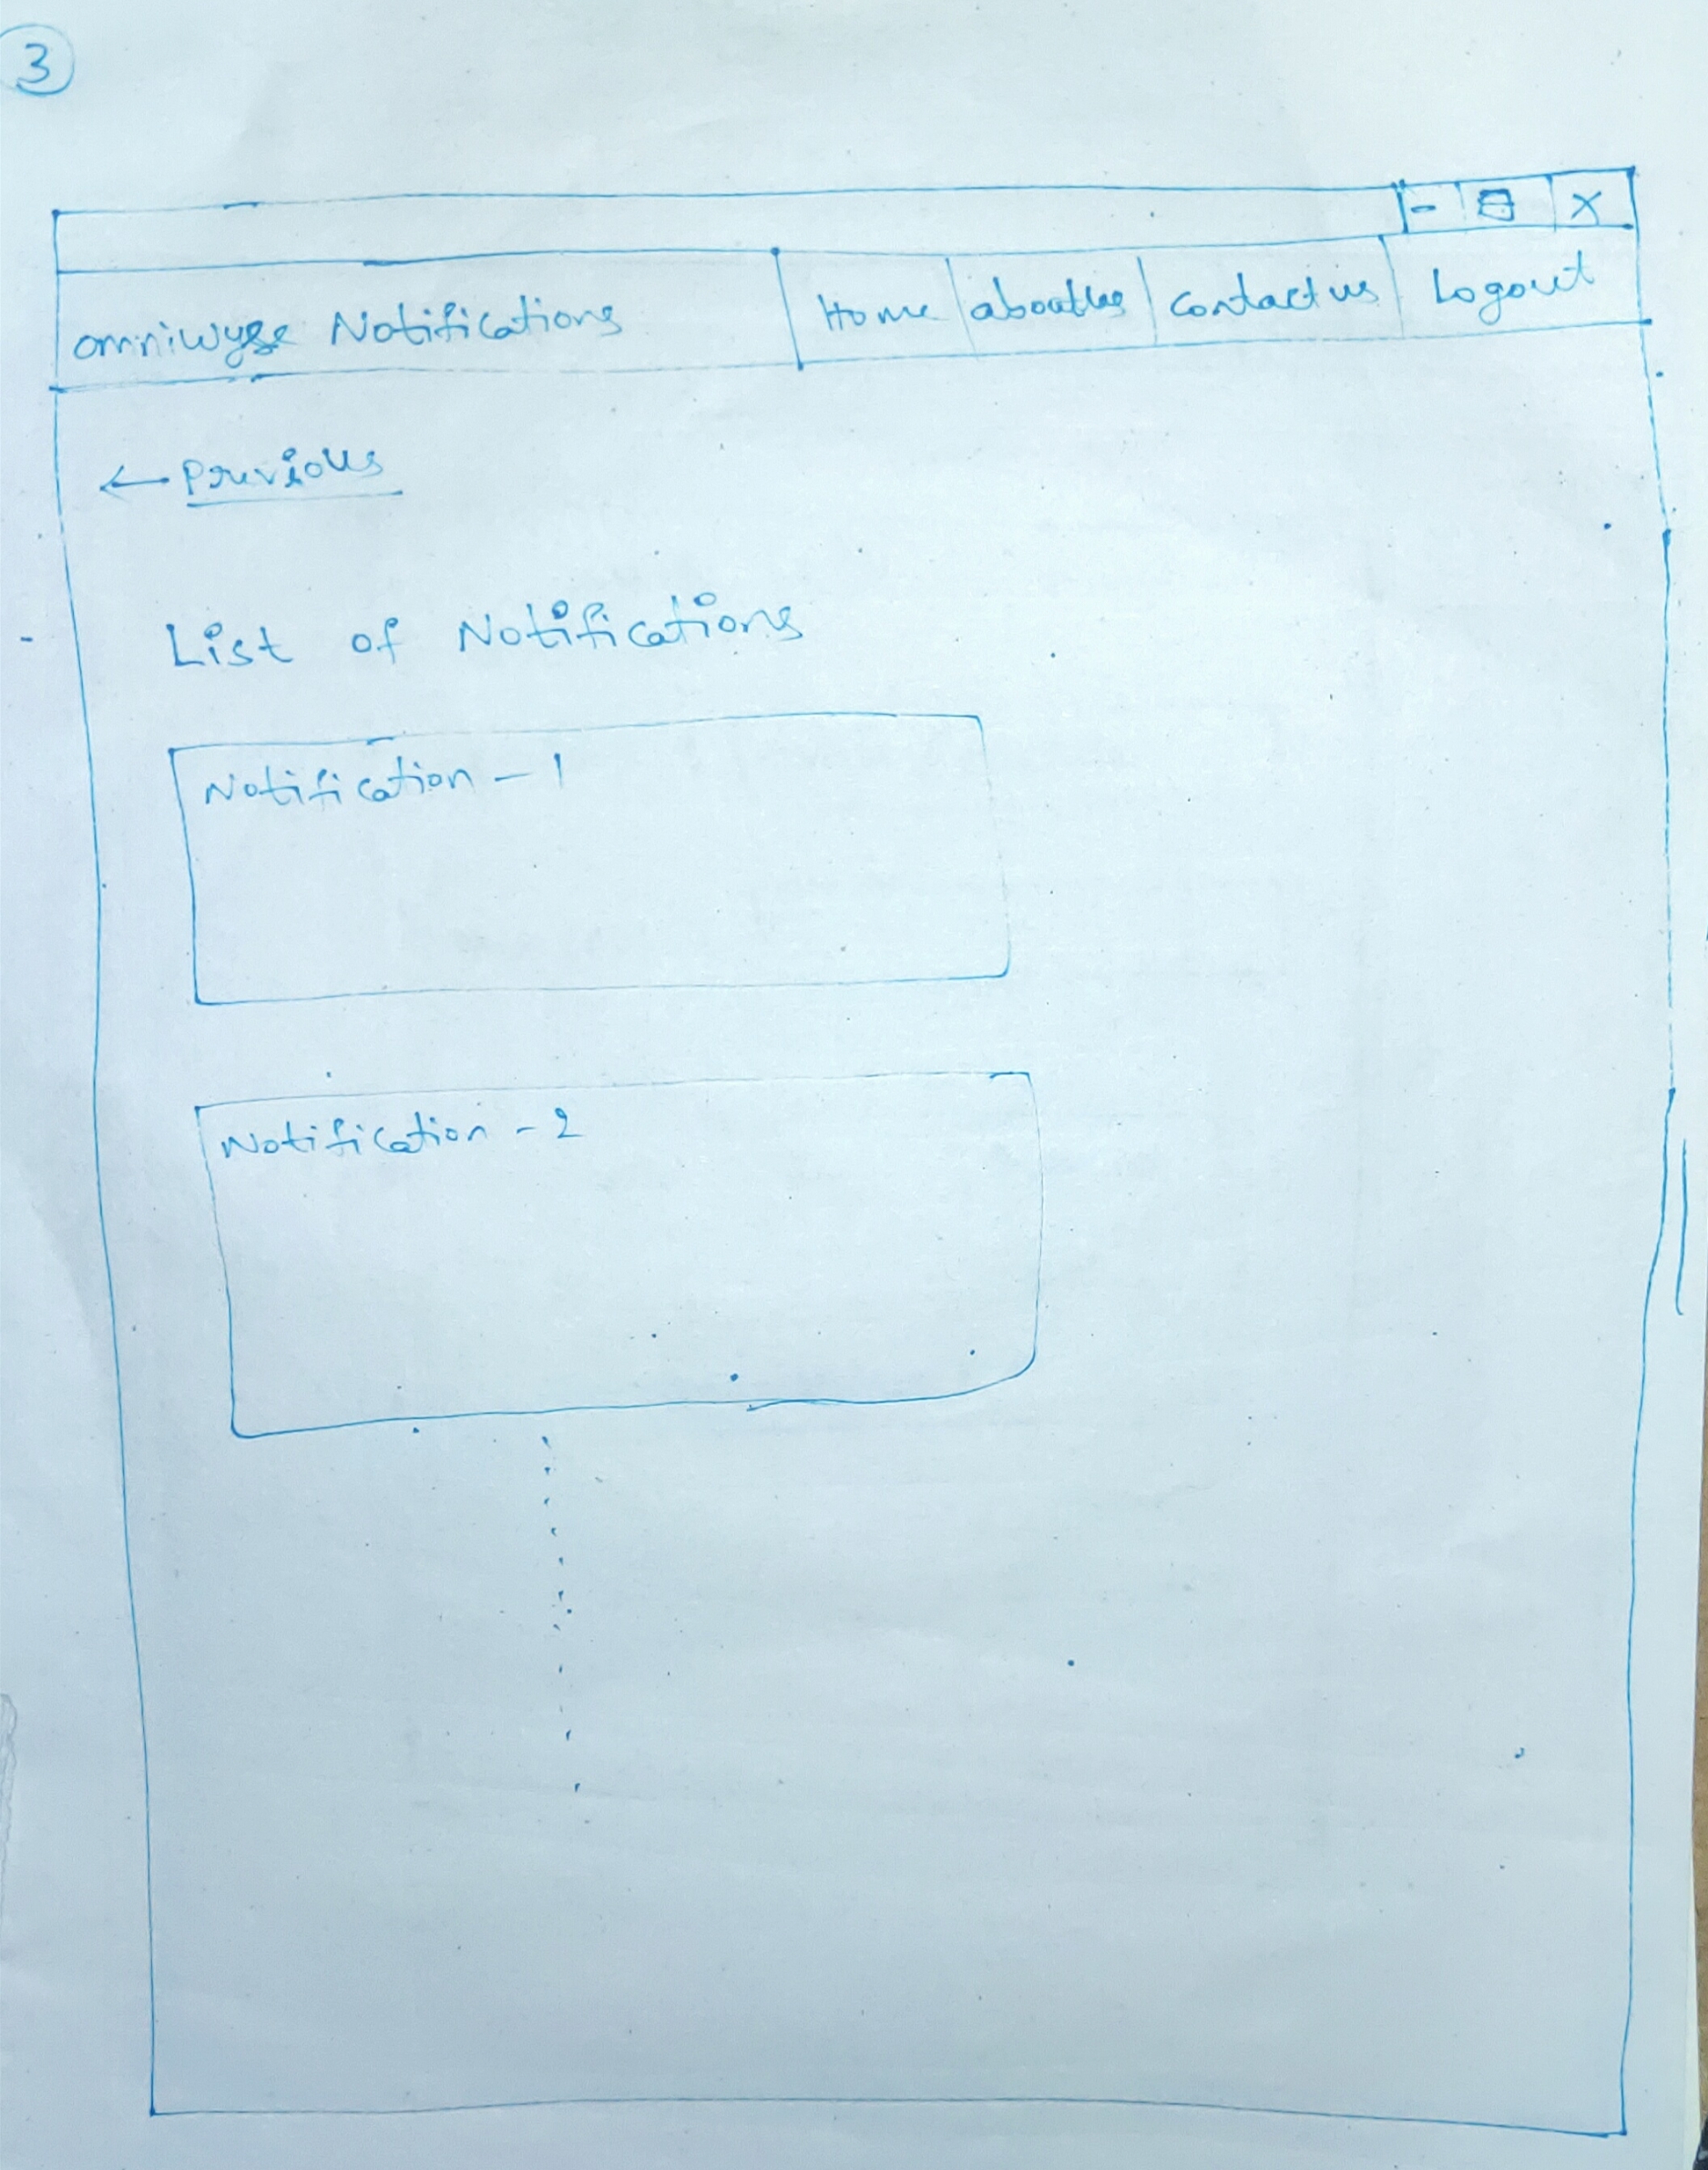 3
- X
omniwyse Notifications Home aboutUs Contact us Logout
← Previous
List of Notifications
Notification - 1
Notification - 2